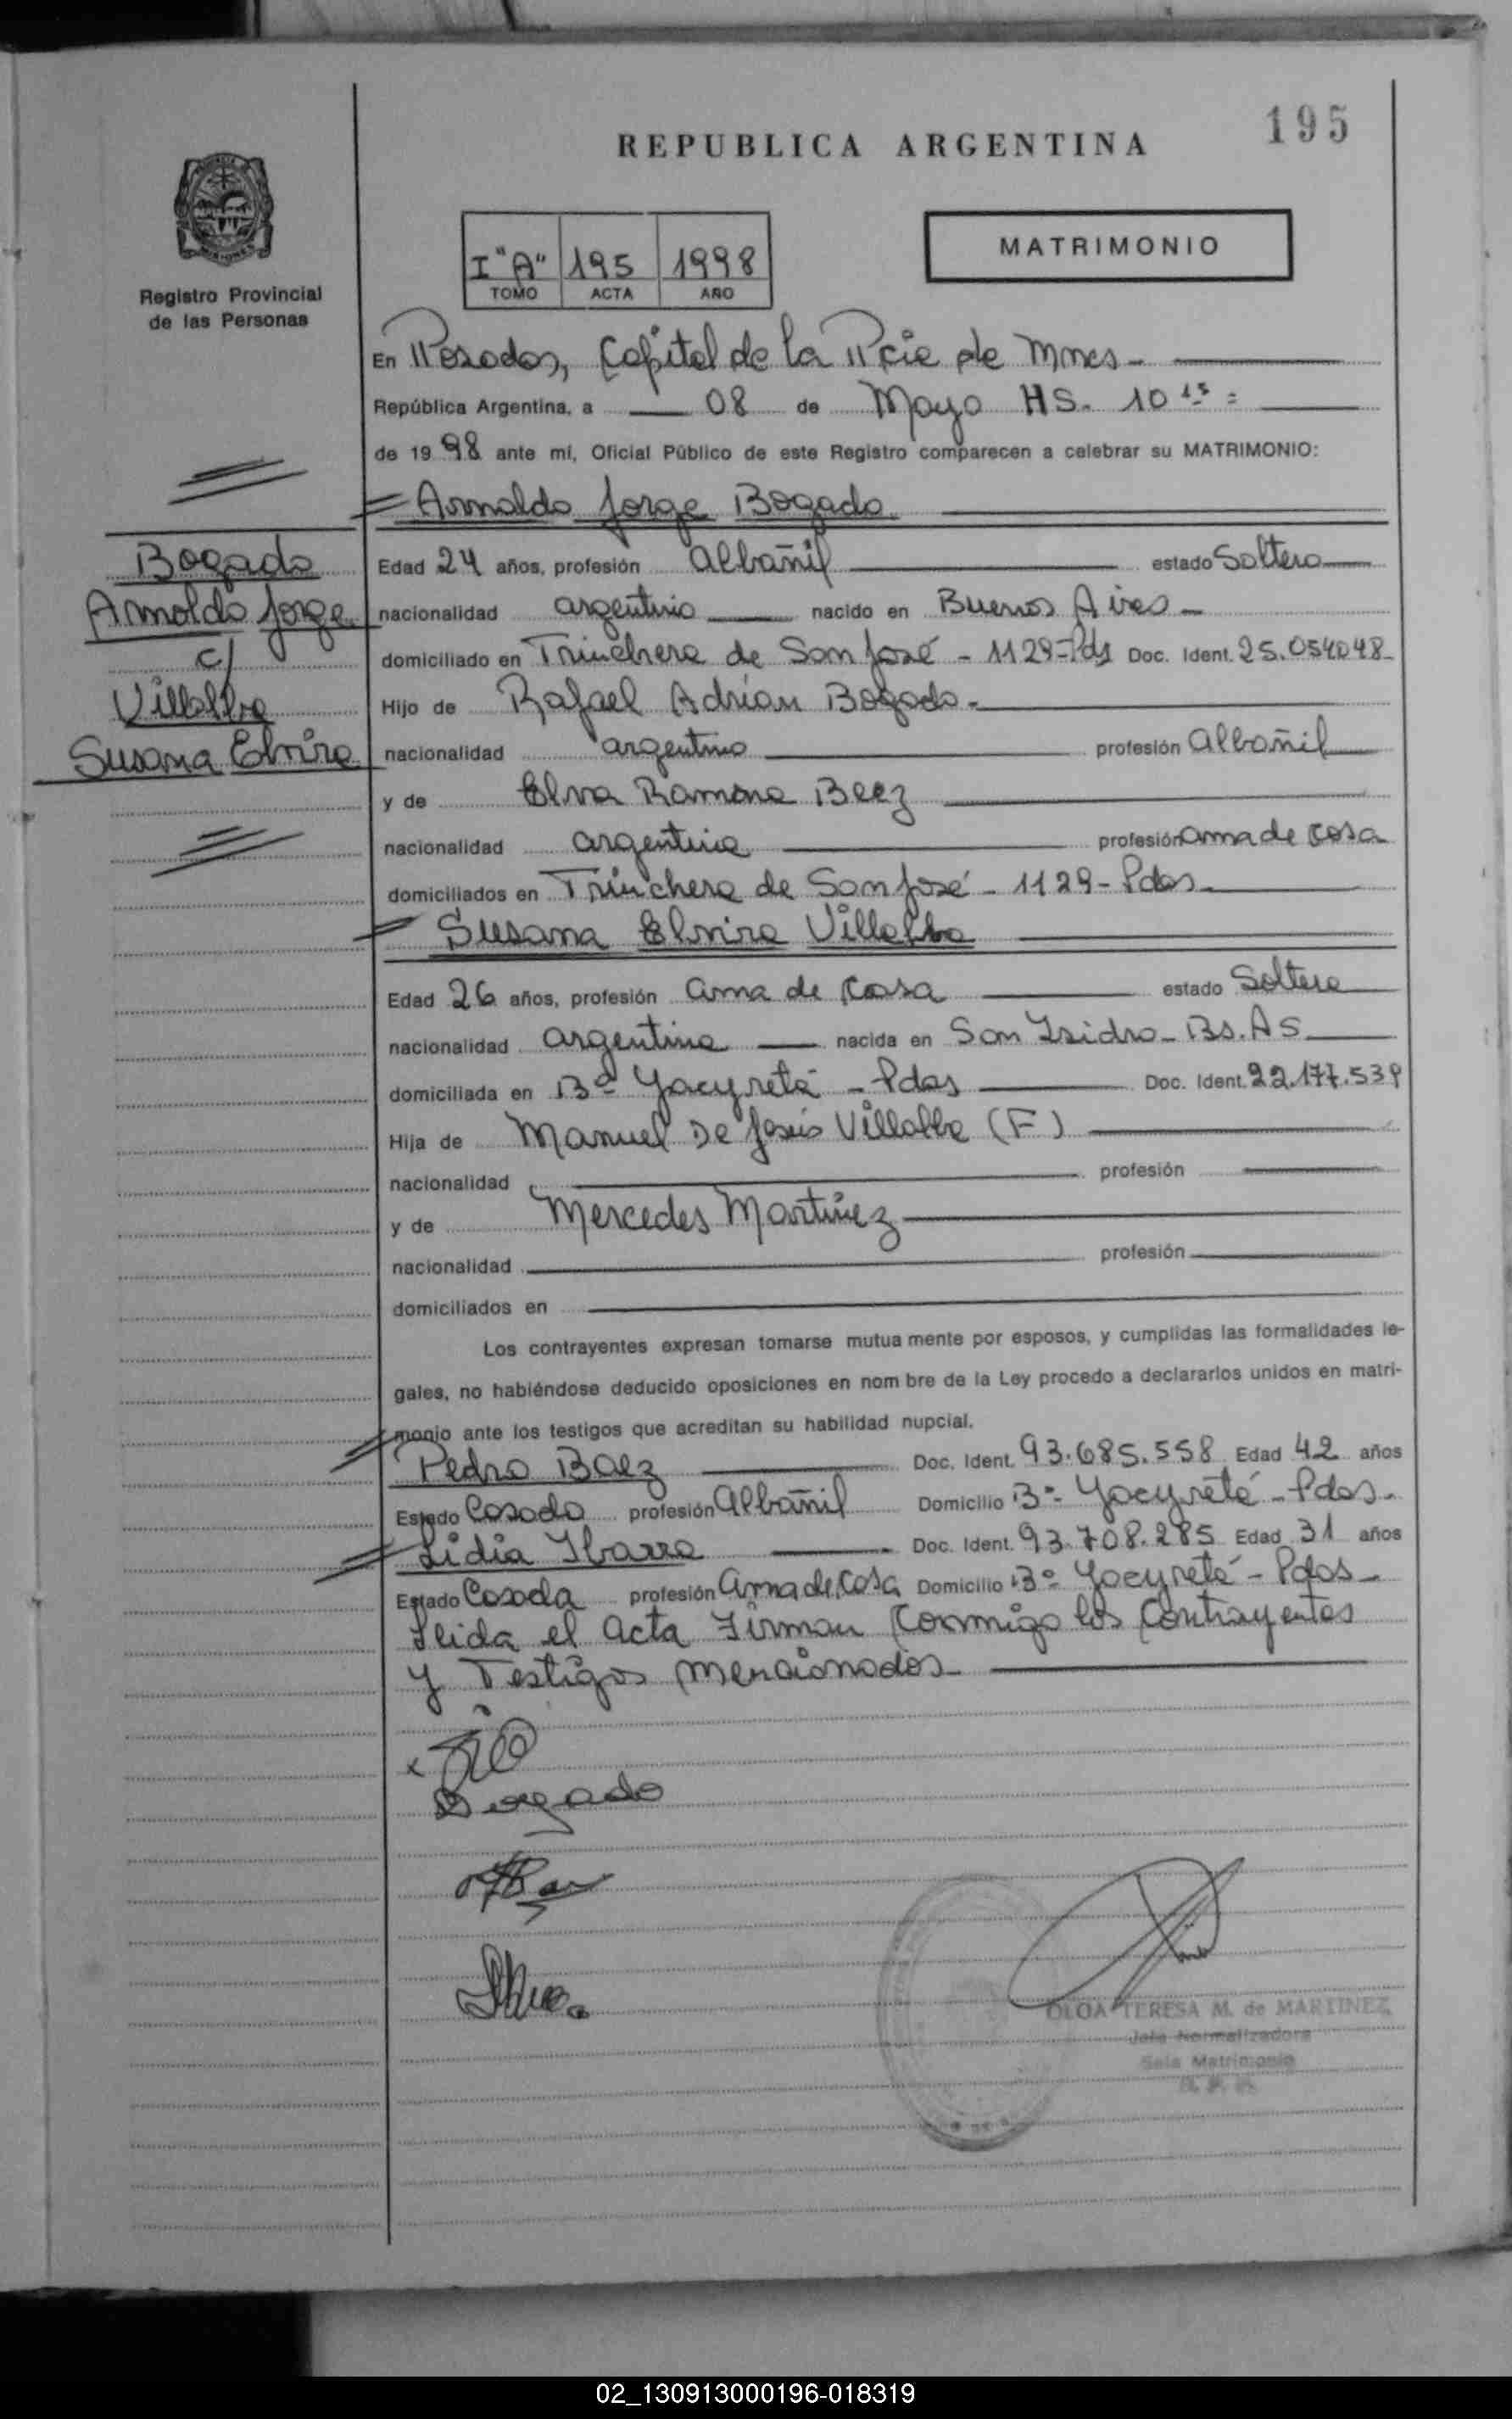 195
REPUBLICA ARGENTINA
I "A" 195 1998
TOMO ACTA AÑO
MATRIMONIO
Registro Provincial
de las Personas
En Posadas, Capital de la Pcie de Mnes-
República Argentina, a 08 de Mayo HS. 10 15 =
de 19 98 ante mí, Oficial Público de este Registro comparecen a celebrar su MATRIMONIO:
Arnaldo Jorge Bogado
Bogado
Arnaldo Jorge
c/
Villalba
Susana Elvira
Edad 24 años, profesión albañil estado Soltero
nacionalidad argentino nacido en Buenos Aires -
domiciliado en Trinchera de San José - 1129-Pds Doc. Ident. 25.054048-
Hijo de Rafael Adrian Bogado-
nacionalidad argentino profesión albañil
y de Elva Ramona Baez
nacionalidad argentina profesión ama de casa
domiciliados en Trinchera de San José - 1129- Pdas-
Susana Elvira Villalba
Edad 26 años, profesión ama de casa estado Soltera
nacionalidad argentina nacida en San Isidro- Bs. As
domiciliada en B° Yacyretá - Pdas Doc. Ident. 22.177.539
Hija de Manuel De Jesús Villalba (F)
nacionalidad profesión
y de Mercedes Martinez
nacionalidad profesión
domiciliados en
Los contrayentes expresan tomarse mutua mente por esposos, y cumplidas las formalidades le-
gales, no habiéndose deducido oposiciones en nom bre de la Ley procedo a declararlos unidos en matri-
monio ante los testigos que acreditan su habilidad nupcial.
Pedro Baez Doc. Ident. 93.685.558 Edad 42 años
Estado Casado profesión albañil Domicilio B°- Yacyretá - Pdas-
Lidia Ibarra Doc. Ident. 93.708.285 Edad 31 años
Estado Casada profesión ama de casa Domicilio B°- Yacyretá - Pdas-
Leida el acta Firman conmigo los contrayentes
y Testigos mencionados-
Bogado
OLGA TERESA M. de MARTINEZ
Jefa Normalizadora
Sala Matrimonio
02_130913000196-018319